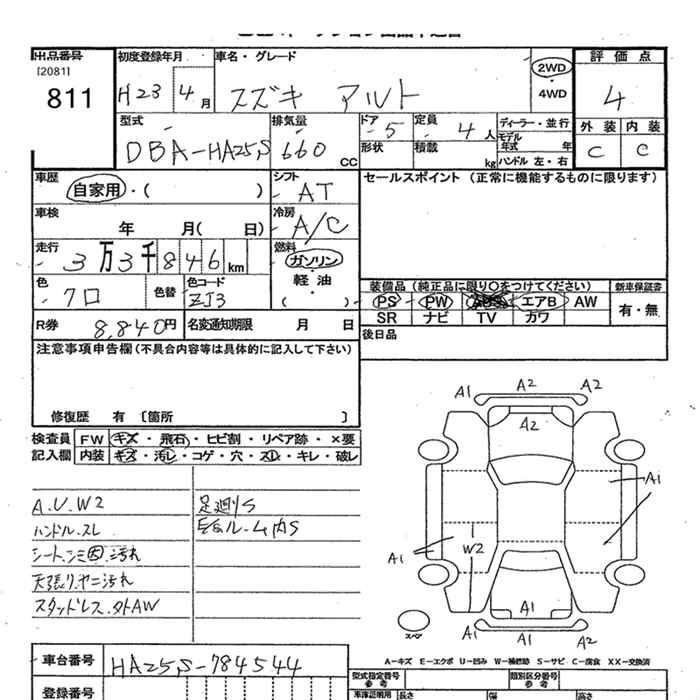 出品番号 初度登録年月 車名・グレード 評価点
[2081]
811
H23 4月 スズキ アルト 2WD ・ 4WD 4
型式 排気量 ドア 定員 ディーラー・並行 外装 内装
DBA-HA25S 660 CC 5 4人 モデル年式 年 C C
形状 積載 kg ハンドル 左・右
車歴 シフト セールスポイント (正常に機能するものに限ります)
自家用・( ) AT
車検 冷房
年 月( 日) A/C
走行 燃料
3万3千846km ガソリン・軽油・( )
色 色替 色コード 装備品 (純正品に限り○をつけてください) 新車保証書
クロ ZJ3 PS PW エアB AW 有・無
SR ナビ TV カワ
R券 8,840円 名変通知期限 月 日 後日品
注意事項申告欄(不具合内容等は具体的に記入して下さい)
修復歴 有 [箇所 ]
検査員 FW キズ・飛石・ヒビ割・リペア跡・×要
記入欄 内装 キズ・汚レ・コゲ・穴・スレ・キレ・破レ
A.U.W2 足廻りS
ハンドル.スレ
シート.シミ 汚れ
天張り.ヤニ汚れ
スタッドレス.外AW
A1 A2 A2
A2
A1
A1 W2
A1
A1 A1 A2
スペア
A-キズ E-エクボ U-凹み W-補修跡 S-サビ C-腐食 XX-交換済
車台番号 HA25S-784544 型式指定番号 参考 類別区分番号 参考
登録番号 車庫証明用 長さ 幅 高さ